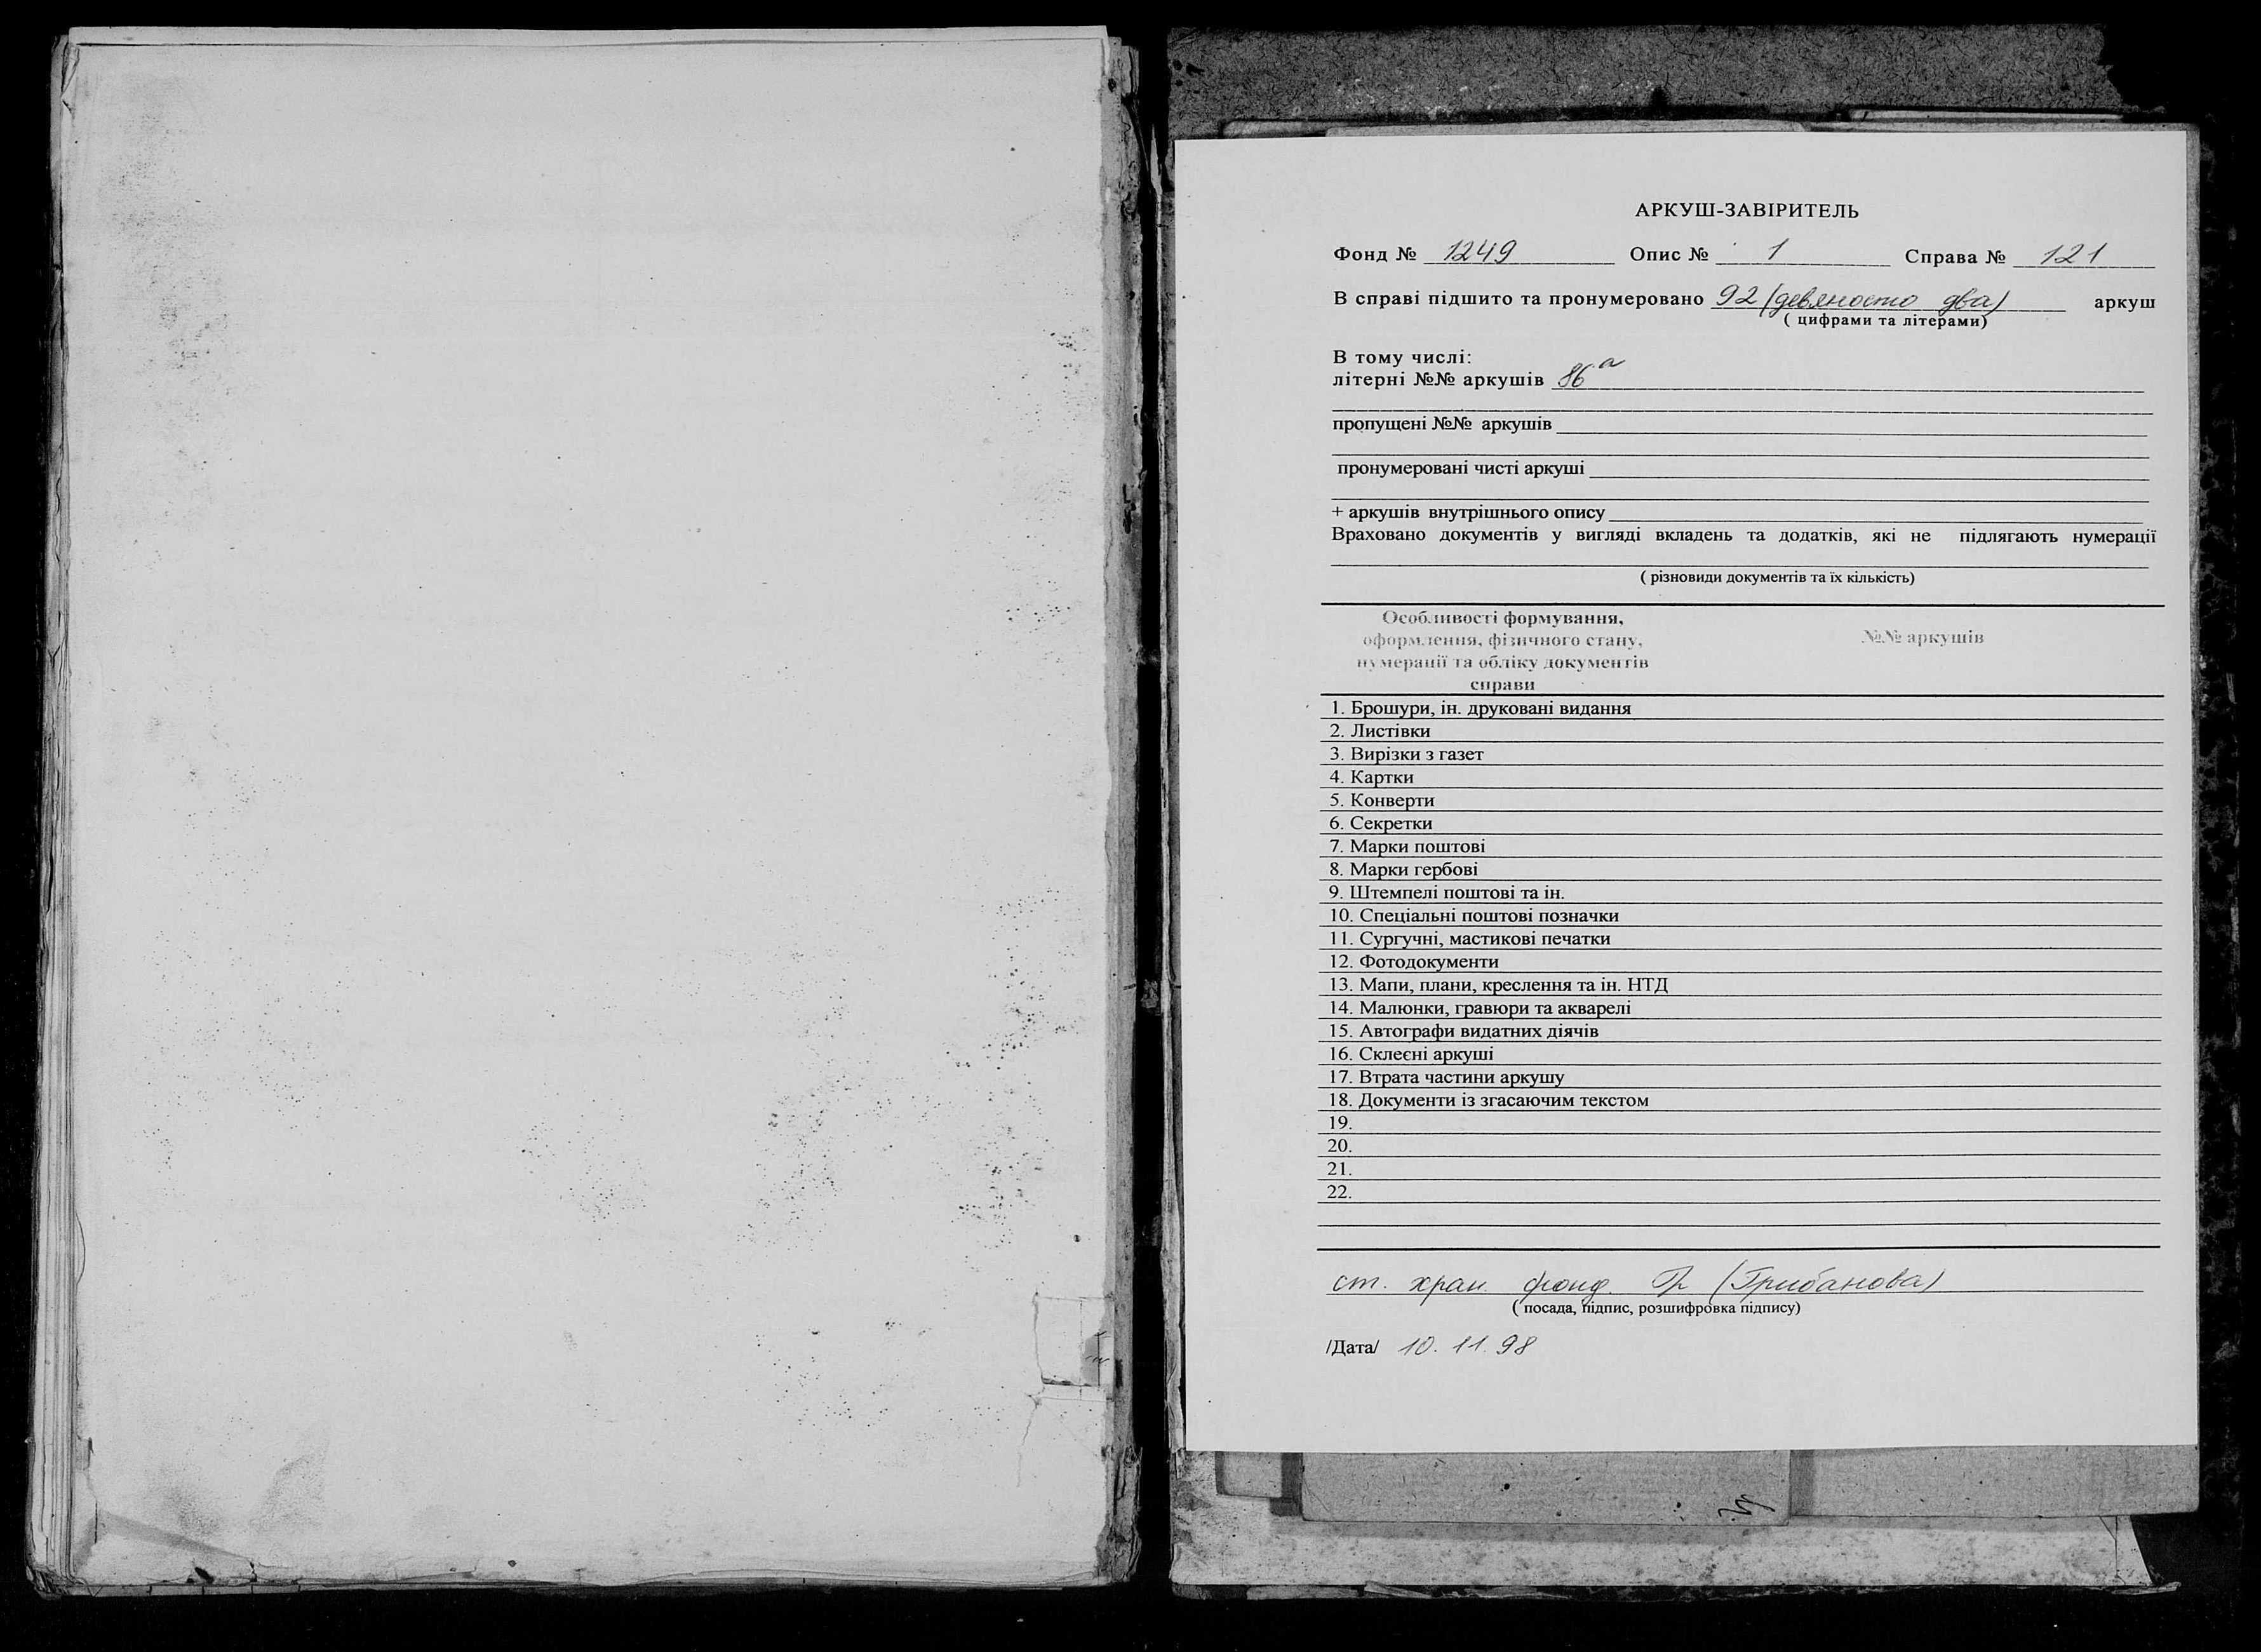 АРКУШ-ЗАВІРИТЕЛЬ
Фонд № 1249 Опис № 1 Справа № 121
В справі підшито та пронумеровано 92 (девяносто два) аркуш
( цифрами та літерами)
В тому числі:
літерні №№ аркушів 86а
пропущені №№ аркушів
пронумеровані чисті аркуші
+ аркушів внутрішнього опису
Враховано документів у вигляді вкладень та додатків, які не підлягають нумерації
( різновиди документів та їх кількість)
Особливості формування,
оформлення, фізичного стану, №№ аркушів
нумерації та обліку документів
справи
1. Брошури, ін. друковані видання
2. Листівки
3. Вирізки з газет
4. Картки
5. Конверти
6. Секретки
7. Марки поштові
8. Марки гербові
9. Штемпелі поштові та ін.
10. Спеціальні поштові позначки
11. Сургучні, мастикові печатки
12. Фотодокументи
13. Мапи, плани, креслення та ін. НТД
14. Малюнки, гравюри та акварелі
15. Автографи видатних діячів
16. Склеєні аркуші
17. Втрата частини аркушу
18. Документи із згасаючим текстом
19.
20.
21.
22.
ст. хран. фонд. (Грибанова)
( посада, підпис, розшифровка підпису)
/Дата/ 10. 11. 98